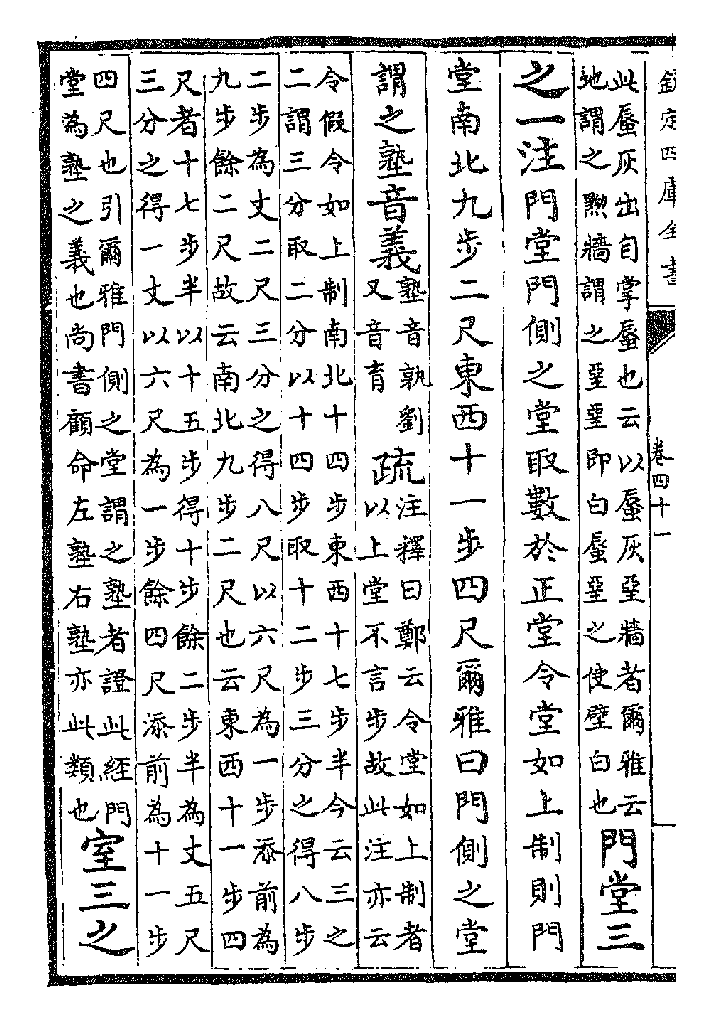 欽定四庫全書 卷四十一
此蜃灰出自掌蜃也云以蜃灰堊牆者爾雅云
地謂之黝牆謂之堊堊即白蜃堊之使壁白也
門堂三
之一注門堂門側之堂取數於正堂令堂如上制則門
堂南北九步二尺東西十一步四尺爾雅曰門側之堂
謂之塾音義
塾音孰劉
又音育
疏
注釋曰鄭云令堂如上制者
以上堂不言步故此注亦云
令假令如上制南北十四步東西十七步半今云三之
二謂三分取二分以十四步取十二步三分之得八步
二步為丈二尺三分之得八尺以六尺為一步添前為
九步餘二尺故云南北九步二尺也云東西十一步四
尺者十七步半以十五步得十步餘二步半為丈五尺
三分之得一丈以六尺為一步餘四尺添前為十一步
四尺也引爾雅門側之堂謂之塾者證此經門
堂為塾之義也尚書顧命左塾右塾亦此類也
室三之